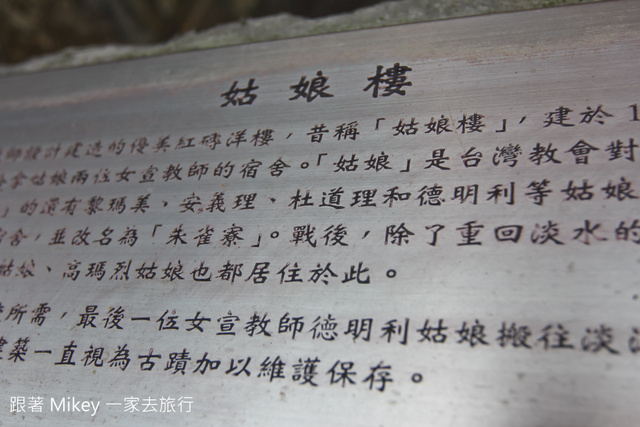 姑娘樓
師設計建造的優美紅磚洋樓，昔稱「姑娘樓」，建於1
拿姑娘兩位女宣教師的宿舍。「姑娘」是台灣教會對
」的還有黎瑪美、安義理、杜道理和德明利等姑娘
宿舍，並改名為「朱雀寮」。戰後，除了重回淡水的
姑娘、高瑪烈姑娘也都居住於此。
所需，最後一位女宣教師德明利姑娘搬往淡
建築一直視為古蹟加以維護保存。
跟著 Mikey 一家去旅行